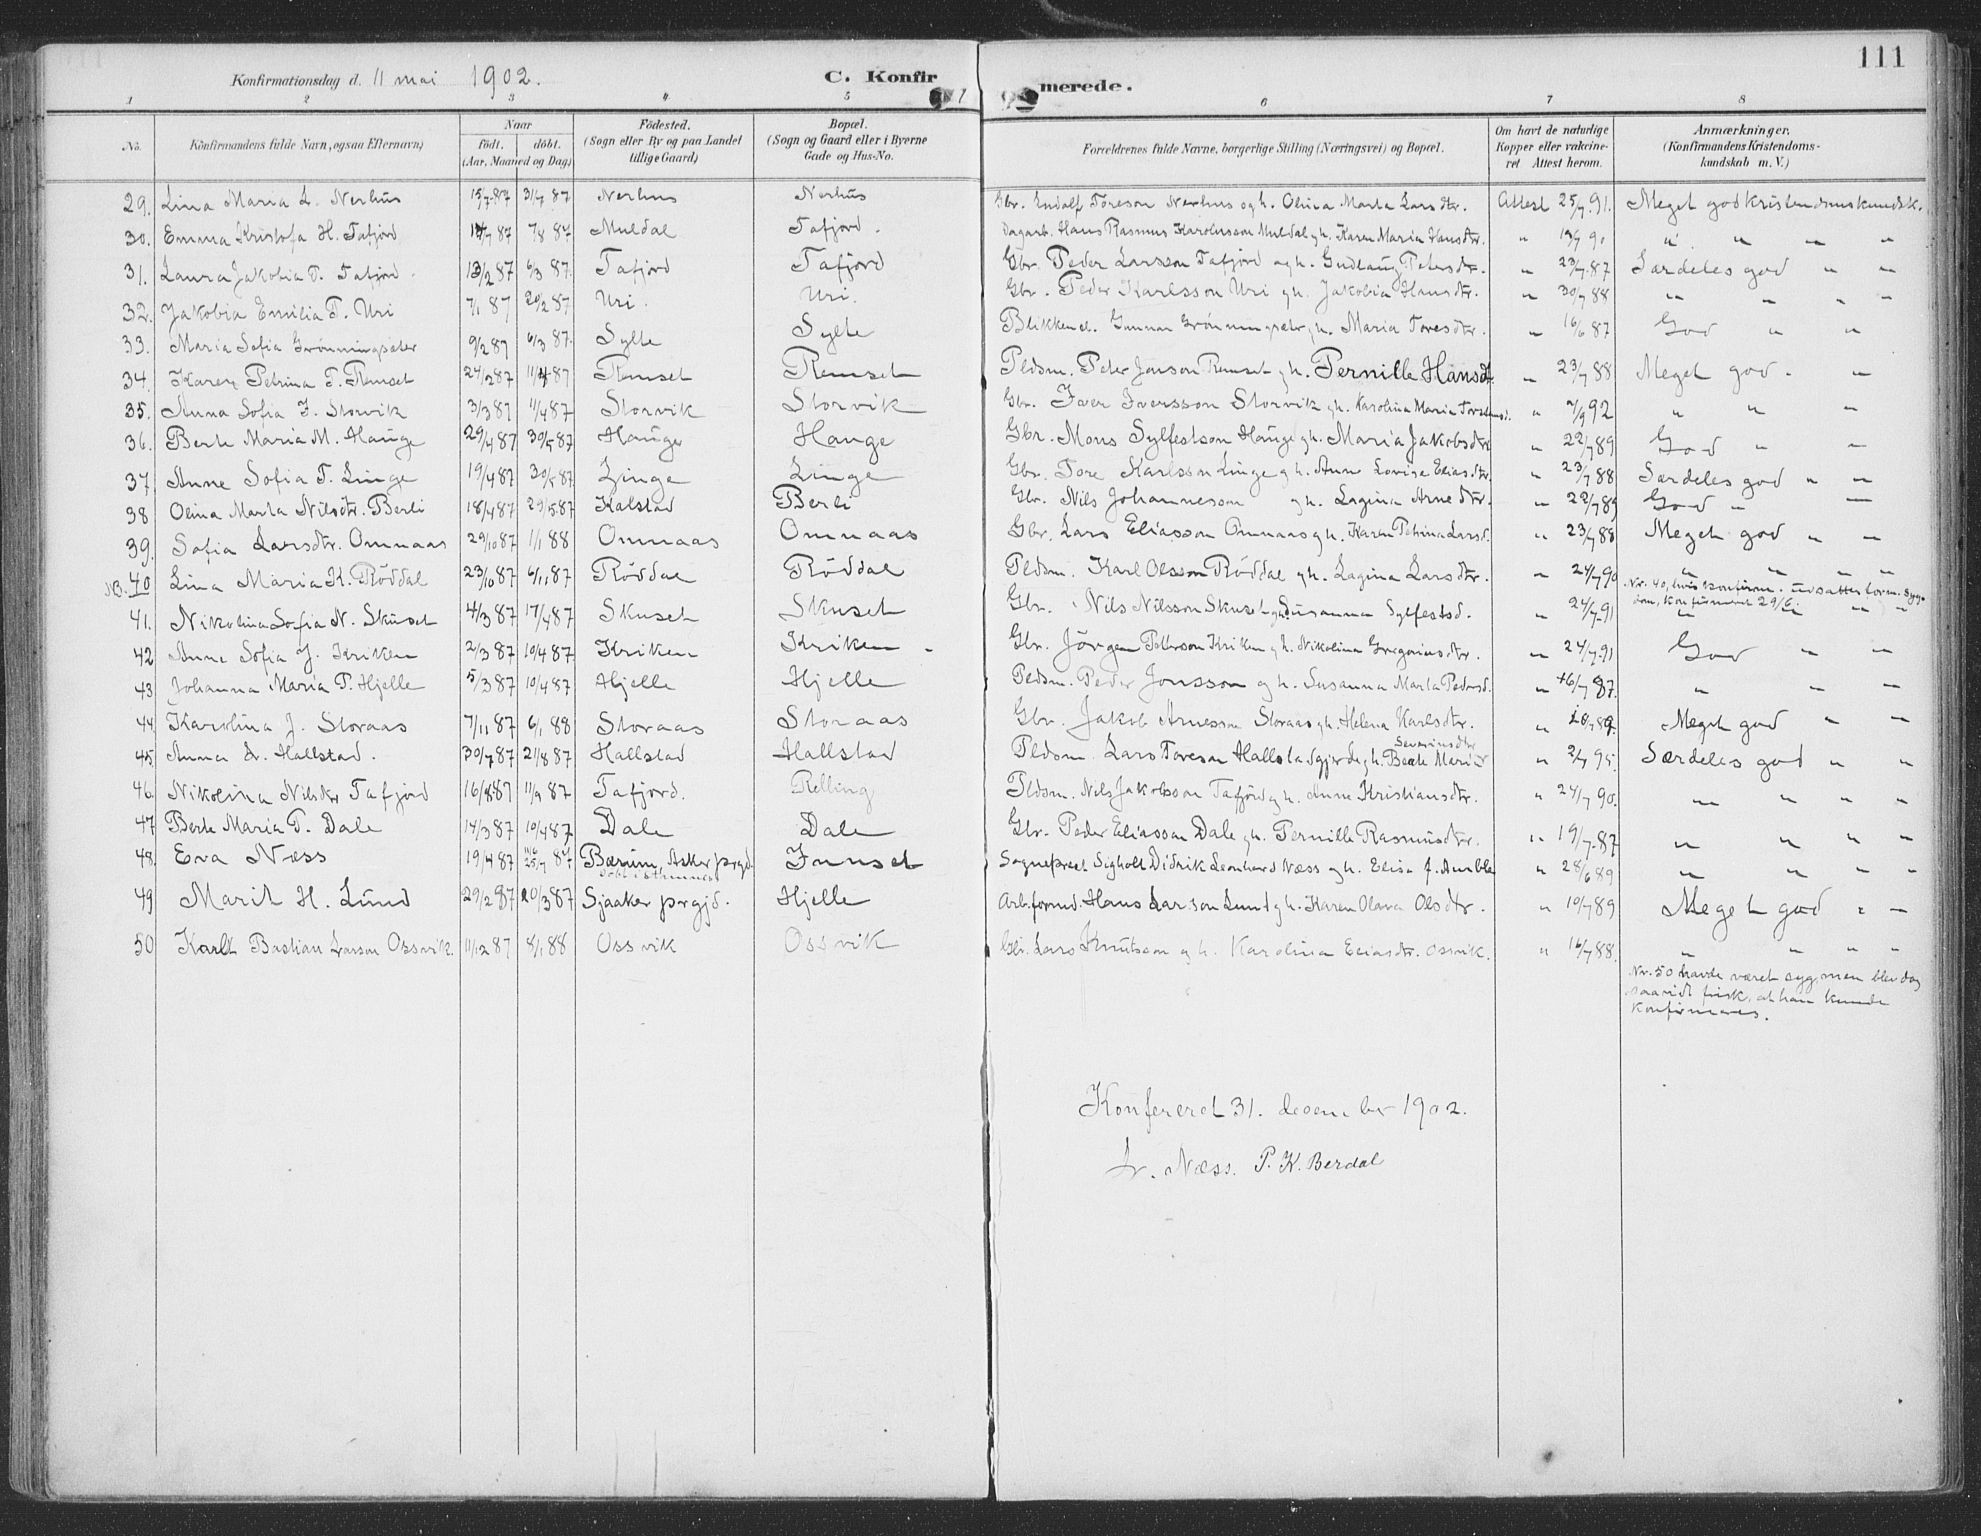 111
Konfirmationsdag d. 11 mai 1902. C. Konfir merede.
1 2 3 4 5 6 7 8
No. Konfirmandens fulde Navn, ogsaa Efternavn) Naar födt. döbt. (Aar, Maaned og Dag) Födested. (Sogn eller By og paa Landet tillige Gaard) Bopæl. (Sogn og Gaard eller i Byerne Gade og Hus-No. Forældrenes fulde Navne, borgerlige Stilling (Næringsvei) og Bopæl. Om havt de naturlige Kopper eller vakcineret Attest herom. Anmærkninger. (Konfirmandens Kristendomskundskab m. V.)
29. Lina Maria L. Nerhus 15/7 87 31/7 87 Nerhus Nerhus Gbr. Endolf Toreson Nerhus og h. Olina Marta Larsdtr. Attest 25/7 91. Meget god kristendomskundsk.
30. Emma Kristofa H. Tafjord 14/7 87 7/8 87 Muldal Tafjord. Dagarb. Hans Rasmus Karolusson Muldal g h. Karen Maria Hansdtr. " 13/7 90 " " " "
31. Laura Jakobia P. Tafjord. 13/2 87 6/3 87. Tafjord Tafjord Gbr. Peder Larsson Tafjord og h. Gudlaug Petersdtr. " 23/7 87 Særdeles god " "
32. Jakobia Emilia P. Uri 7/1 87 20/2 87 Uri. Uri. Gbr. Peder Karlsson Uri g h. Jakobia Hansdtr. " 30/7 88 " " " "
33. Maria Sofia Grönningsæter 9/2 87 6/3 87. Sylte Sylte Blikkensl. Gunnar Grönningsetr g h. Maria Toresdtr. " 16/6 87 God " "
34. Karen Petrina P. Remset 24/2 87 11/4 87 Remset Remset Pldsm. Peter Jonson Remset g h. Pernille Hansdt. " 23/7 88 Meget god. "
35. Anna Sofia I. Storvik 3/3 87 11/4 87 Storvik Storvik Gbr. Iver Iversson Storvik g h. Karolina Maria Torstensd. " 7/9 92 " " "
36. Berte Maria M. Hauge 29/4 87 30/5 87 Hauge Hauge Gbr. Mons Sylfestson Hauge g h. Maria Jakobsdtr " 22/7 89 God " "
37 Anne Sofia T. Linge 19/4 87 30/5 87 Linge Linge Gbr. Tore Karlsson Linge g h. Anne Lovise Eliasdtr. " 23/7 88 Særdeles god " "
38 Olina Marta Nilsdtr. Berli 18/4 87 29/5 87 Kalstad Berli Gbr. Nils Johanneson g h. Lagina Arnedtr. " 22/7 89 God " "
39. Sofia Larsdtr. Omnaas 29/10 87 1/1 88 Omnaas Omnaas Gbr. Lars Eliasson Omnaas g h. Karen Petrina Larsd. " 23/7 88 Meget god " "
NB. 40 Lina Maria K. Röddal 23/10 87 6/11 87 Röddal Röddal Pldsm. Karl Olsson Röddal g h. Lagina Larsdtr. " 24/7 90 " " " "
Nr. 40, hvis konfirm. udsattes form. sygdom, konfirmeret 29/6.
41. Nikolina Sofia N. Skuset 4/3 87 17/4 87 Skuset Skuset Gbr. Nils Nilsson Skuset g h. Susanna Sylfestsd. " 24/7 91 " " " "
42 Anne Sofia J. Kriken 2/3 87 10/4 87 Kriken Kriken Gbr. Jörgen Peterson Kriken g h. Nikolina Gregoriusdtr. " 24/7 91 God " "
43 Johanna Maria P. Hjelle 5/3 87 10/4 87 Hjelle Hjelle Pldsm. Peder Jonsson g h. Susanna Marta Pedersd. " 16/7 87. " " "
44 Karolina J. Storaas 7/11 87 6/1 88 Storaas Storaas Gbr. Jakob Arnesson Storaas g h. Helena Karlsdtr. " Meget god " "
45. Anna L. Hallstad. 30/7 87 21/8 87 Hallstad Hallstad Pldsm. Lars Toreson Hallstadgjerde g h. Beate Maria Severinsdtr " 2/7 95. Særdeles god " "
46. Nikolina Nilsdtr Tafjord 16/8 87 11/9 87 Tafjord. Relling Pldsm. Nils Jakobsson Tafjord g h. Anne Kristiansdtr. " 24/7 90. " " " "
47 Berte Maria P. Dale 14/3 87 10/4 87 Dale Dale Gbr. Peder Eliasson Dale g h. Pernille Rasmusdtr. " 19/7 87 " " " "
48. Eva Næss 19/4 87 25/7 87 Bærum, Asker prgjd. Innset Sogneprest Sigholt Didrik Leonhard Næss og h. Elisa J. Aumble " 28/6 89 " " " "
49 Marit H. Lund 29/2 87 20/3 87 Sjaaker prgjd. Hjelle Arb.formd. Hans Larson Lund g h. Karen Olava Olsdtr. " 10/7 89 Meget god " "
50 Karl Bastian Larson Ossvik. 11/12 87 8/1 88 Ossvik Ossvik Gbr. Lars Knutson og h. Karolina Eliasdtr. Osvik. " 16/7 88. " " " "
Nr. 50 havde været syg, men blev dog
saavidt frisk, at han kunde
konfirmeres.
Konfereret 31. desember 1902.
Lr. Næss. P. K. Berdal